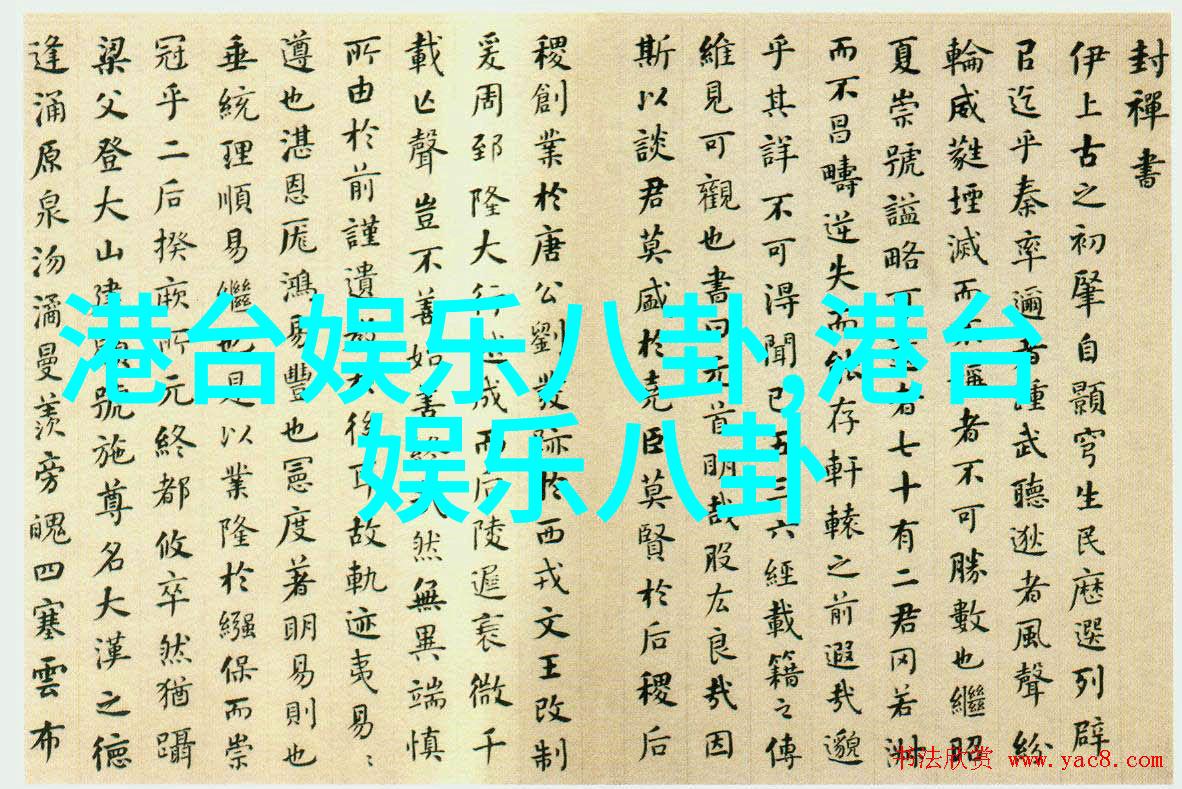 封禪書
伊上古之初肇自顥穹生民歷選列辟
㠯迄乎秦率邇者踵武聽逖者風聲紛
輪威蕤堙滅而不稱者不可勝數也繼昭
夏崇號謚略可者七十有二君罔若淑
而不昌疇逆失而能存軒轅之前遐哉邈
乎其詳不可得聞已五三六經載籍之傳
維見可觀也書曰元首明哉股厷良哉因
斯以談君莫盛於堯臣莫賢於后稷后
稷創業於唐公劉發跡於西戎文王改制
爰周郅隆大行越成而后陵遲衰微千
載亾聲豈不善始善終然無異端慎
所由於前謹遺後耳故軌迹夷易〻
遵也湛恩厖鴻易豐也憲度著明易則也
垂統理順易繼也是以業隆於繈保而崇
冠乎二后揆厥所元終都攸卒然猶躡
梁父登大山建號施尊名大漢之德
逢涌原泉沕潏曼羨旁魄四塞雲布
港台娱乐八卦,港台
娱乐八卦
书法欣赏 www.yac8.com